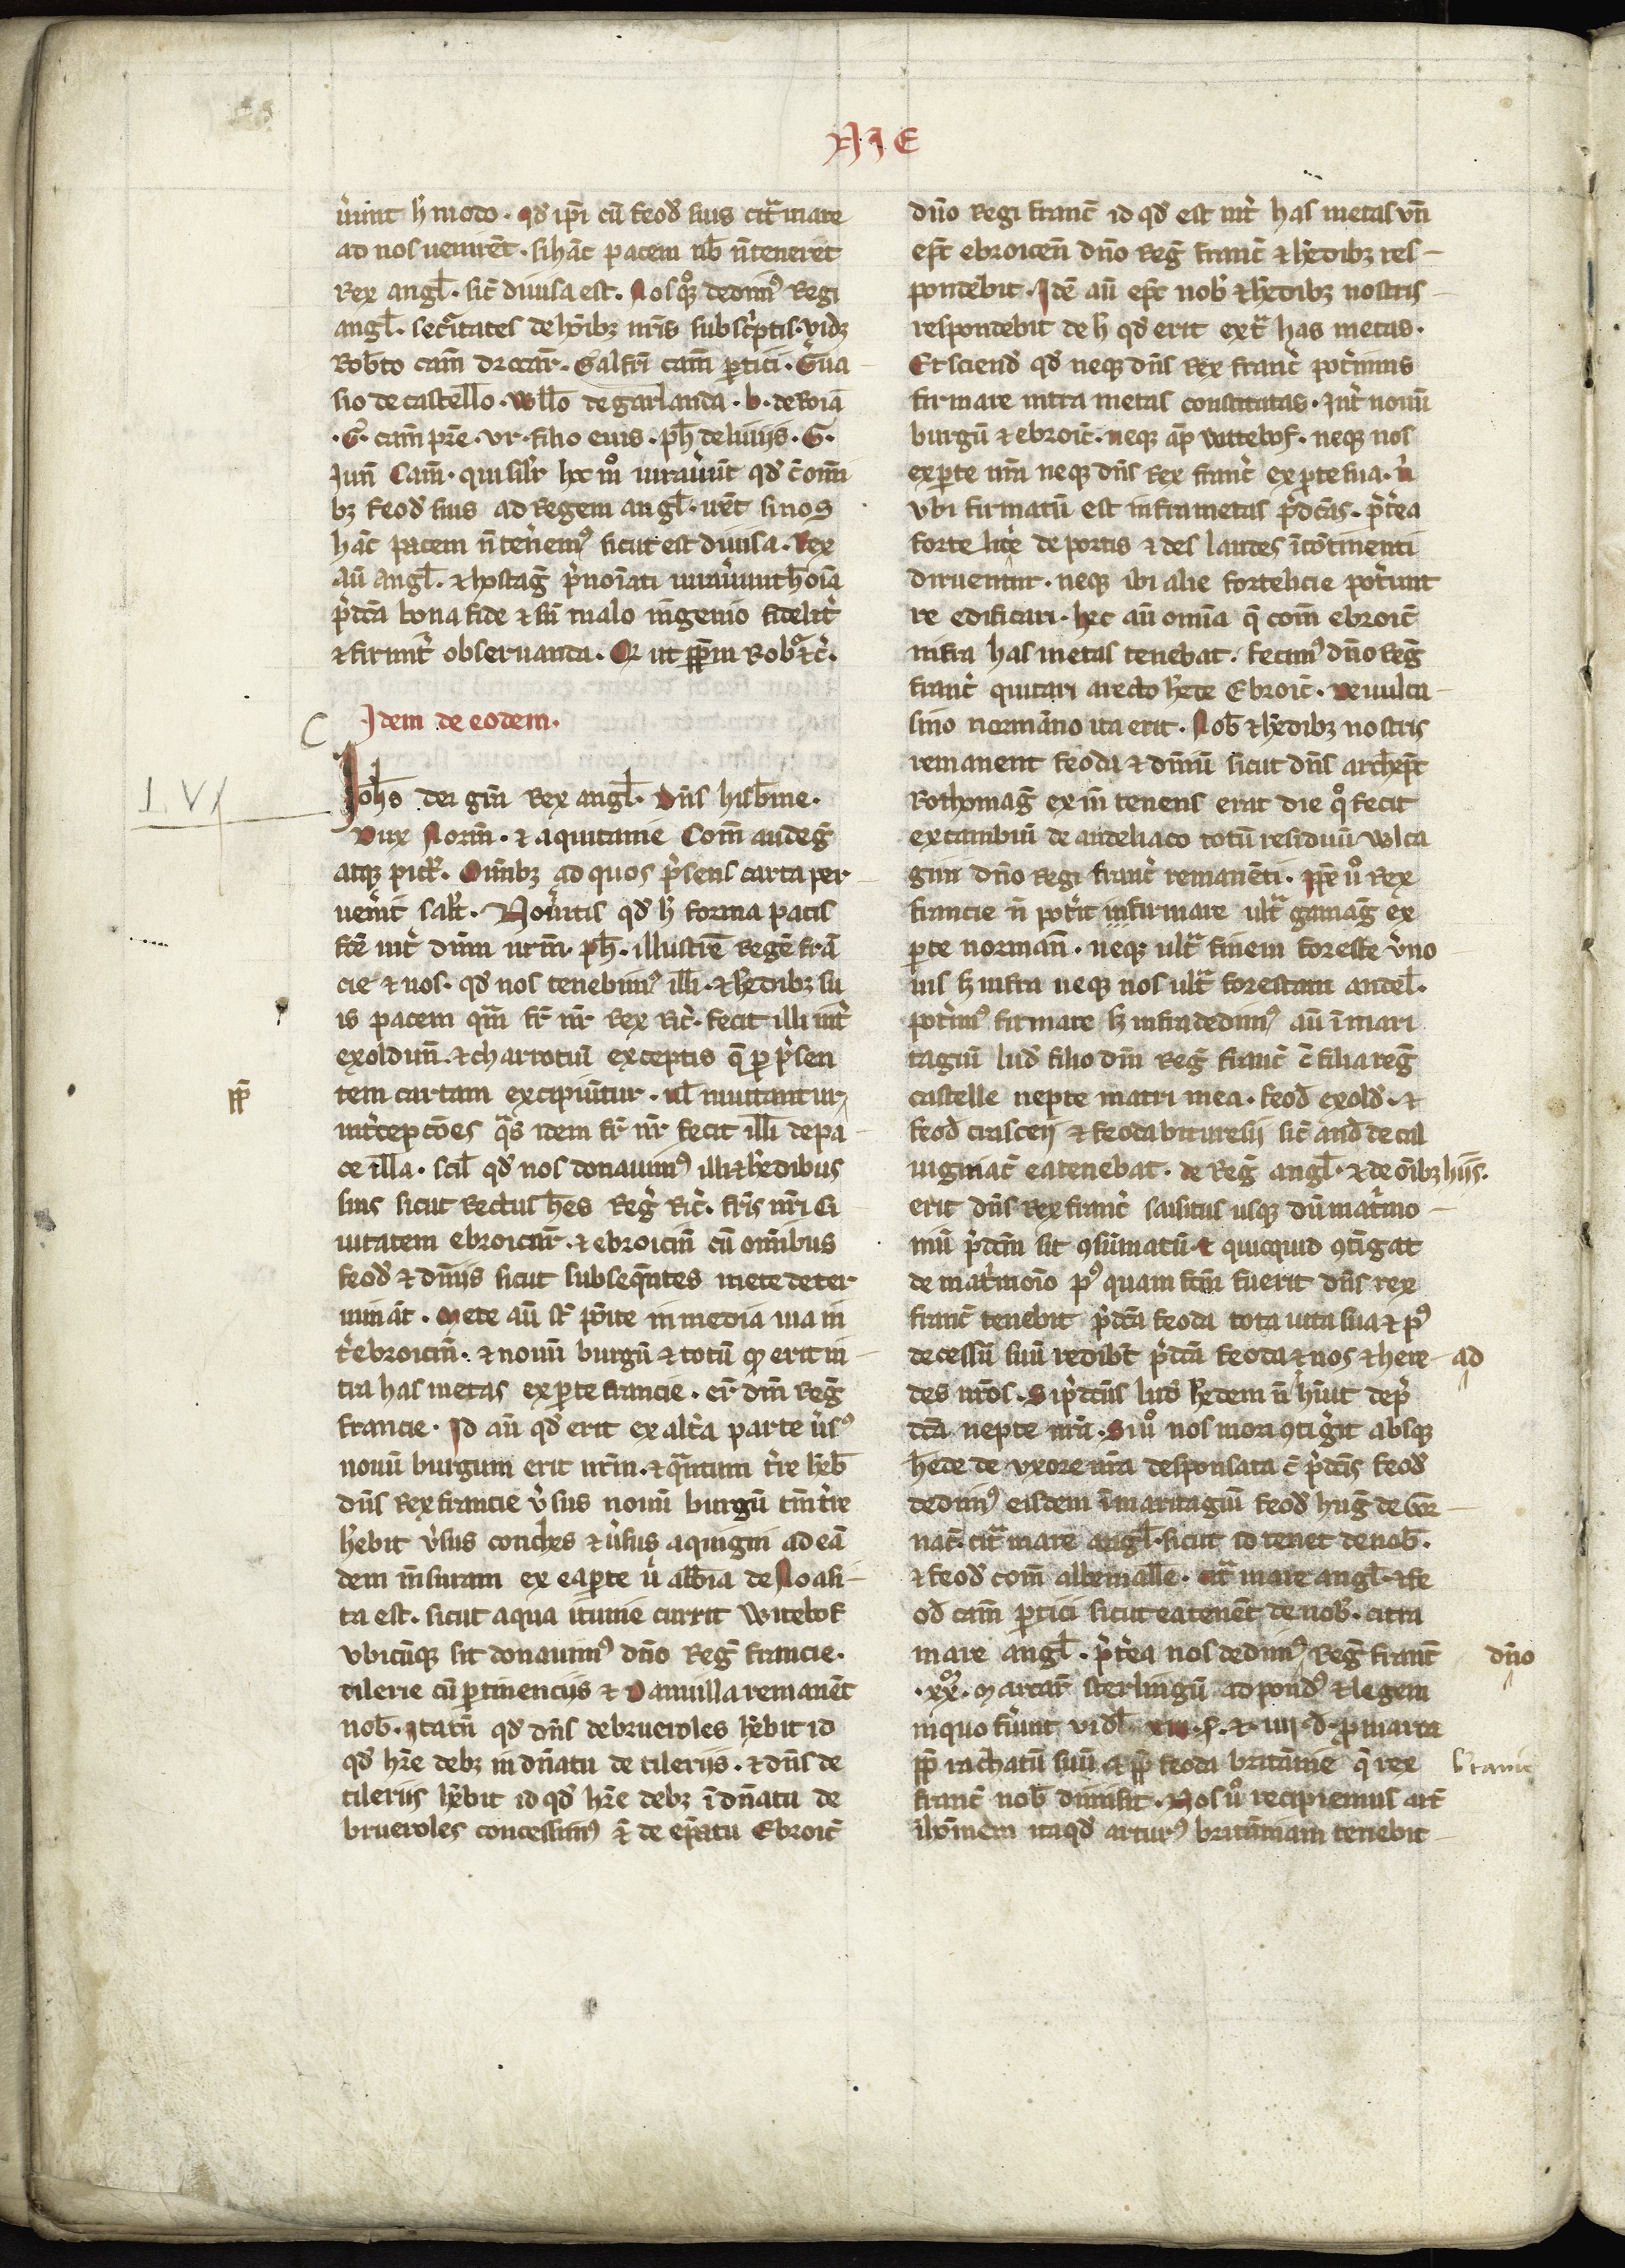 NIE
ư̄unt h̄ modo. qd̛ ip̄i cū feod̛ suis cit̛ mare
ad nos uenirēt. si hāc pacem nob̄ n̄ tenerēt
Rex angl̛. sic̄ diuisa est. Nos qꝫ dedim᷒ Regi
angl̛. sec̛itates de hoībꝫ nr̄is subsc̛ptis. vidꝫ
Rob̄to com̄ drocar̄. Galfrī com̄ ꝑtici. Gr̛ua
sio de castello. Wll̄o de garlanda. b. de Roiā
.G̛. cam̄ pr̄e. vr̄. filio eius. ph̄ de luuijs. G.
Iun̄ Cam̄. qui sil̛r hoc m̊ iuraưūt qd̛ c̄ om̄i
bꝫ feod̛ suis ad Regem angl̛. uēt̄ si nos
hāc pacem n̄ tēnem᷒ sicut est diuisa. Rex
aū angl̛. & hostag̛ p̛noīati iuraưunt h̄ oīa
p̛dc̄a bona fide & sn̄ malo ingenio fidelit̛
& firmit̛ obseruanda. Qd̛ ut ꝑp̄m Rob̛ &c̄.
Idem de eodem.
Ioh̄s dei gr̄a Rex angl̛. Dn̄s hib̄nie.
Dux Norm̄. & aquitanie Com̄ andeg̛
LVI
atqꝫ pict̛. Om̄ibꝫ ad quos p̛sens carta per
uen̛it salt̛. Noưitis qd̛ h̄ forma pacis
fc̄e int̛ dn̄m nr̄m. ph̄. illustrē Regē frā
cie & nos. qd̛ nos tenebim᷒ illi. & h̄edibꝫ su
is pacem qm̄ fr̄ nr̄ Rex Ric̄. fecit illi int̛
exoldun̄. & charrotuī exceptis q̄ ꝑ p̛sen
tem cartam excipiūtur. ul̛ mutantur
ꝑp̄
int̛cepcōes q̛s idem fr̄ nr̄ fecit illi de pa
ce illa. scil̛ qd̛ nos donauim᷒ illi & h̄edibus
suis sicut Rectus h̄es Reg̛ Ric̄. fr̄is nr̄i Ci
uitatem ebroicar̄. & ebroicin̄ cū om̄ibus
feod̛ & dn̄ijs sicut subseq̄ntes mete deter
mināt. Mete aū st̄ poīte in media uia in
t̛ ebroicin̄. & nouū burgū & totū qd̛ erit in
tra has metas ex ꝑte francie. er̄ dn̄i Reg̛
francie. Id aū qd̛ erit ex alt̛a parte ưs᷒
nouū burgum erit nr̄m. & q̛ntum t̛re h̄eb̄
dn̄s Rex francie v̛sus nouū burgū tm̄ t̛re
h̄ebit v̛sus conches & ưsus aquigni ad eā
dem mēsuram ex ea ꝑte ư abb̄ia de Noa si
ta est. sicut aqua itunie currit Witebof
vbicūqꝫ sit donauim᷒ dn̄o Reg̛ francie.
tilerie cū ꝑtinencijs & Danuilla remanēt
nob̄. Ita tn̄ qd̛ dn̄s de brueroles h̄ebit id
qd̛ h̄re debꝫ in dn̄atu de tilerijs. & dn̄s de
tilerijs h̄ebit id qd̛ h̄re debꝫ ī dn̄atu de
brueroles concessim᷒ & de ep̄atu Ebroic̄
dn̄o Regi franc̄ id qd̛ est int̛ has metas vn̄
ep̄c ebroicen̄ dn̄o Reg̛ franc̄ & h̄edibꝫ res
pondebit. Idē aū ep̄c nob̄ & h̄edibꝫ nostris
respondebit de h̄ qd̛ erit ext̛ has metas.
Et sciend̛ qd̛ neqꝫ dn̄s Rex franc̄ pot̛imus
firmare intra metas constitutas. Int̛ nouū
burgū & ebroic̄. neqꝫ ap̄ Wittebof. neqꝫ nos
ex ꝑte nr̄a neqꝫ dn̄s Rex franc̄ ex ꝑte sua. n̛
vbi firmatū est infra metas p̛dc̄as. p̛t̛ea
forte lic̛e de portis & des landes īcōtinenti
diruentur. neqꝫ ibi alie fortelicie pot̛unt
re edificari. hec aū omīa q̄ com̄ ebroic̄
infra has metas tenebat. fecim᷒ dn̄o Reg̛
franc̄ quitari a recto h̄ede Ebroic̄. De uulca
sino normāno ita erit. Nob̄ & h̄edibꝫ nostris
remanent feoda & dn̄iū sicut dn̄s archep̄c
Rothomag̛ ex in̄ tenens erat die q̊ fecit
excambiū de andeliaco totū residuū wlca
sini dn̄o Regi franc̄ remanēti. Ip̄e ưo Rex
francie n̄ pot̛it infirmare ult̛ gamag̛ ex
ꝑte norman̄. neqꝫ ult̛ finem foreste v̛no
nis h̄ infra neqꝫ nos ult̛ forestam andel̛.
pot̛im᷒ firmare h̄ infra dedim᷒ aū ī mari
tagiū lud̛ filio dn̄i Reg̛ franc̄ c̄ filia reg̛
castelle nepte matri mea. feod̛ exold̛. &
feod̛ crascey & feoda bituresij sic̄ and̛ de cal
uigniac̄ ea tenebat. de Reg̛ angl̛. & de oībꝫ hijs.
erit dn̄s Rex franc̄ saisitus usqꝫ dū mat̛mo
niū p̛dc̄m sit ꝯsūmatū. & quicquid ꝯtīgat
de mat̛monio p᷒ quam fc̄m fuerit dn̄s rex
franc̄ tenebit p̛dc̄a feoda tota uita sua & p᷒
decessū suū redibt̄ p̛dc̄a feoda & nos & here ad
des nr̄os. Si p̛dc̄us lud̛ h̄edem n̄ h̄uit de p̛
dc̄a nepte nr̄a. Si ưo nos mori ꝯtig̛it absqꝫ
hēde de vxore nr̄a desponsata c̄ p̛dc̄is feod̛
dedim᷒ eisdem ī maritagiū feod̛ hug̛ de Gor
nac̄. cit̛ mare angl̛. sicut id tenet de nob̄.
& feod̛ com̄ albemalle. cit̛ mare angl̛. & fe
od̛ com̄ ꝑtici sicut ea tenēt de nob̛. citra
mare angl̛. p̛t̛ea nos dedim᷒ Reg̛ franc̄ dn̄o
.xx. Marcar̄ sterlingū ad pond᷒ & legem
in quo fưunt vidl̛. xiii. s̛. & iiij. d̛. pro marca
ꝓp̄ rachatū suū. & ꝓp̄ feoda britānie q̄ rex
franc̄ nob̄ dimisit. Nos ưo recipiemus art̛
ī hōinem ita qd̛ artur᷒ britāniam tenebit